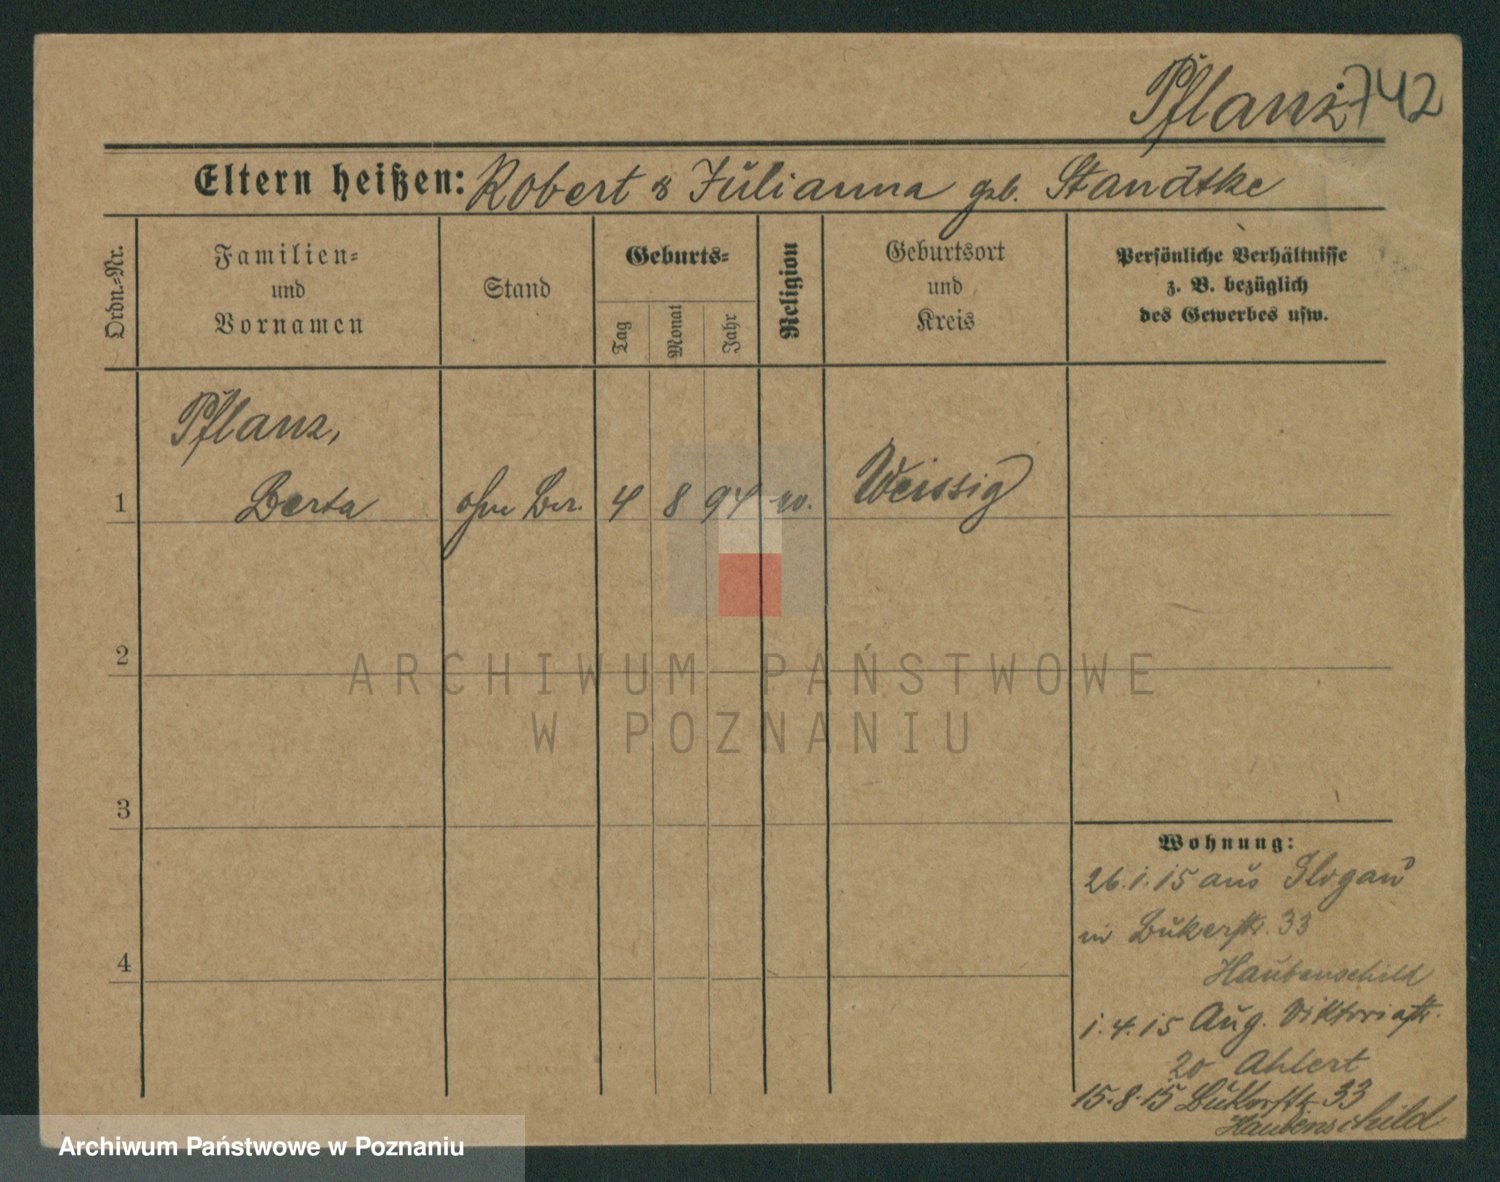 Pflanz 742
Eltern heißen: Robert & Julianna geb. Standtke
Ordn.-Nr.
Familien- und Vornamen
Stand
Geburts-
Tag
Monat
Jahr
Religion
Geburtsort und Kreis
Persönliche Verhältnisse
z. B. bezüglich
des Gewerbes usw.
Pflanz,
1 Berta ohne Ber. 4 8 94 ev. Weissig
2
3
4
ARCHIWUM PAŃSTWOWE
W POZNANIU
Wohnung:
26.1.15 aus Glogau
in Bukerstr. 33
Haubenschild
1.4.15 Aug. Viktoriastr.
20 Ahlert
15.8.15 Bukerstr. 33
Haubenschild
Archiwum Państwowe w Poznaniu